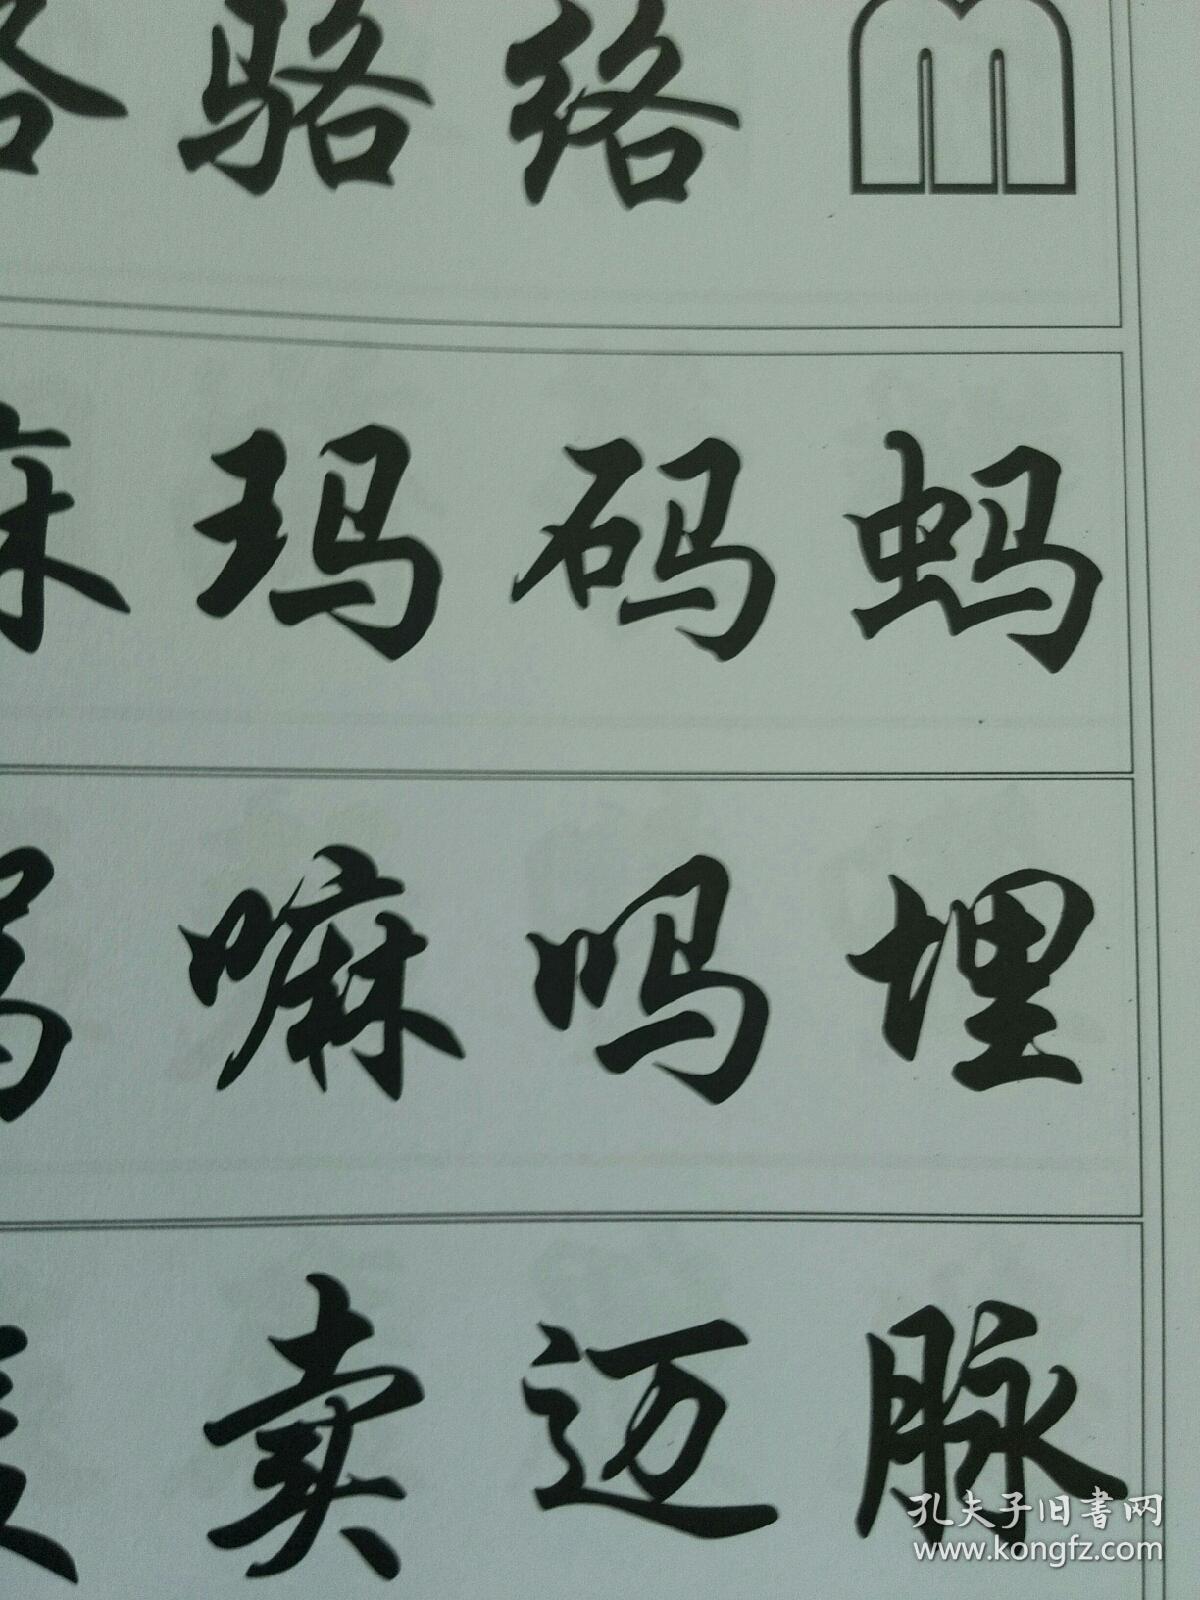 骆 络 M
麻 玛 码 蚂
骂 嘛 吗 埋
卖 迈 脉
孔夫子旧书网
www.kongfz.com